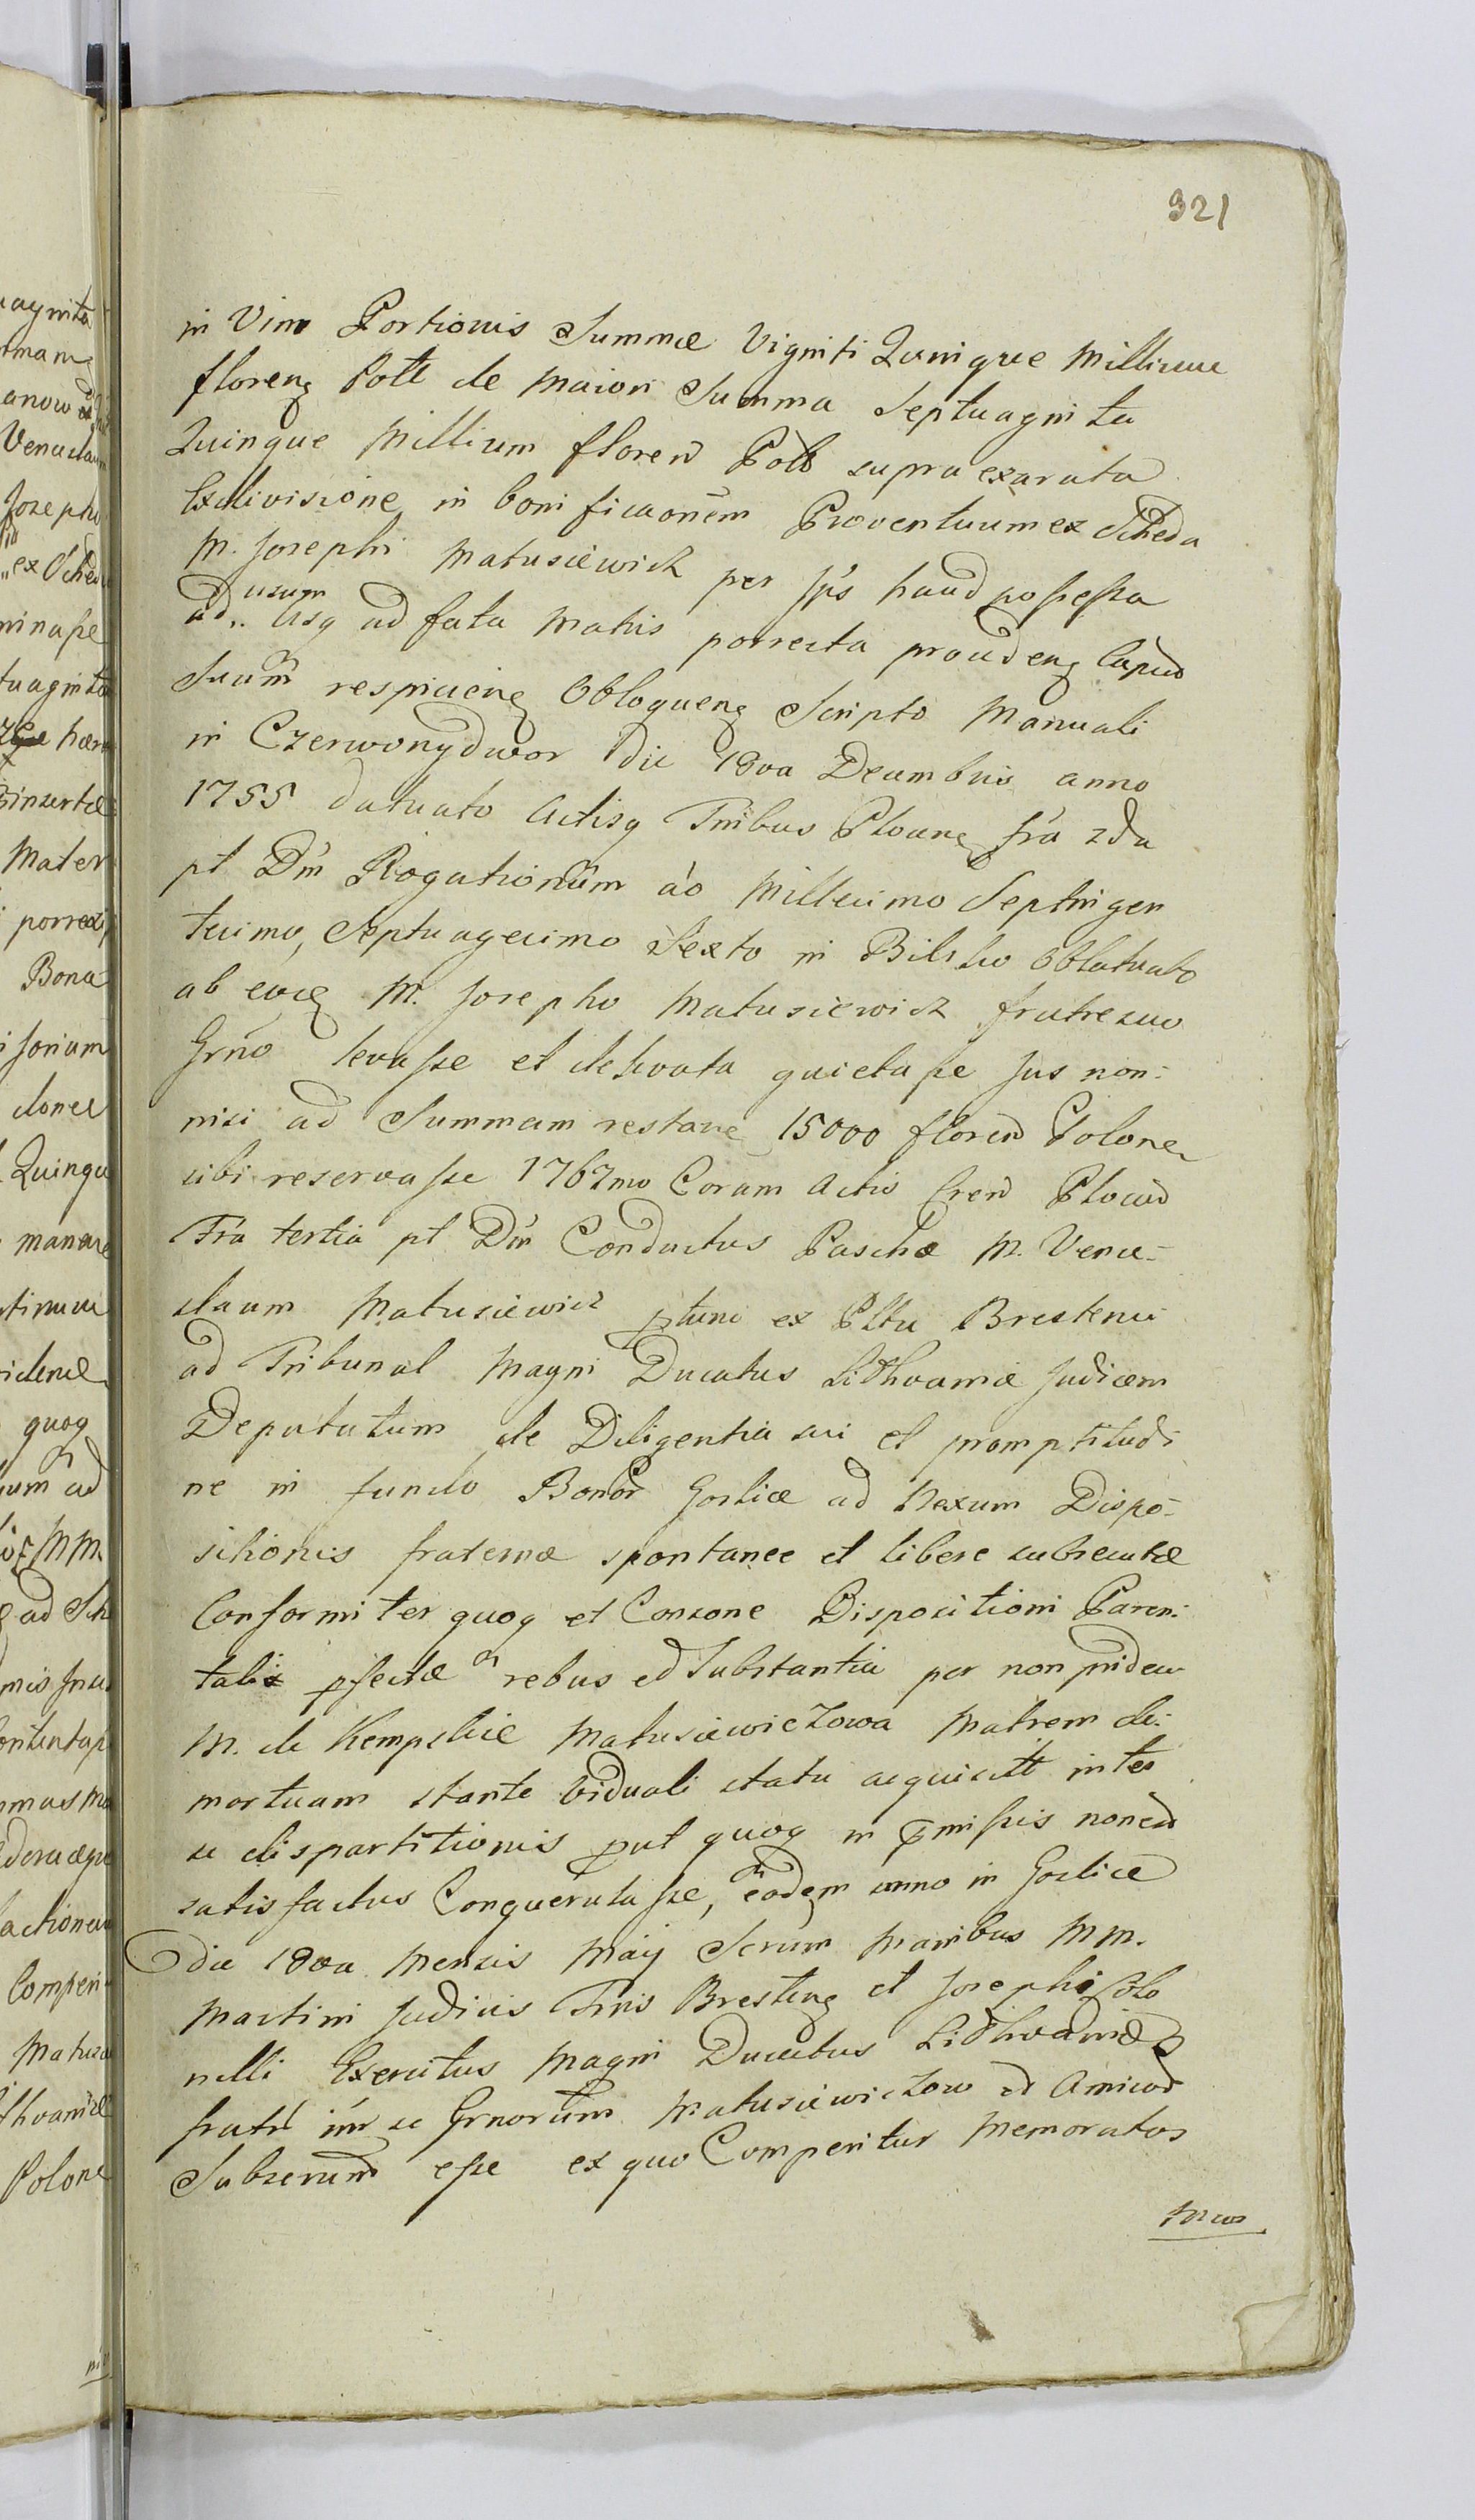 321
in Vim Portionis Summæ Viginti Quinque Millium
floren Poll de Maiori Summa Septuaginta
Quinque Millium floren Poll supra exarata
Exdivisione in bonificaonem Proventuum ex Scheda
M. Josephi Matusiewicz per Ips haud possessa
ad usum Usq ad fata Matris porrecta
Suum Obloquen Scripto Manuali
in Czerwonydwor die 18va Decembris anno
1755 datuato Actisq Tribus Plocen fra 2da
pt Dm Rogationum ao Millesimo Septingen
tesimo, Septuagesimo Sexto in Bilsko Oblatuato
ab eoq M. Josepho Matusiewicz fratre suo
Grno levasse et de levata quietasse Jus non:
nisi ad Summam restan 15000 floren Polone
sibi reservasse 1767mo Coram Actis Cren Plocen
Fra tertia pt Dm Conductus Paschæ M. Vence-
slaum Matusiewicz ptunc ex Pltu Brestensi
ad Tribunal Magni Ducatus Lithvaniæ Judicem
Deputatum de Diligentia sui et promptitudi
ne in fundo Bonor Goslice ad Nexum Dispo-
sitionis fraternæ spontanee et libere subsecutæ
Conformiter quoq et Consone Dispositioni Paren:
talis pfectæ rebus et Substantia per non pridem
M. de Kempskie Matusiewiczowa Matrem de:
mortuam stante Viduali statu acquisitt inter
se dispartitionis put quoq in pmissis noned
satisfactus Conquerulasse, eodem anno in Goslice
die 18va Mensis Maij Serum Manibus MM.
Martini Judicis Trris Bresten et Josephi Colo
nelli Exercitus Magni Ducatus Lidhvaniæ
fratr im se Grnorum Matusiewiczow et Amicor
Subserund esse ex quo Comperitur Memoratos